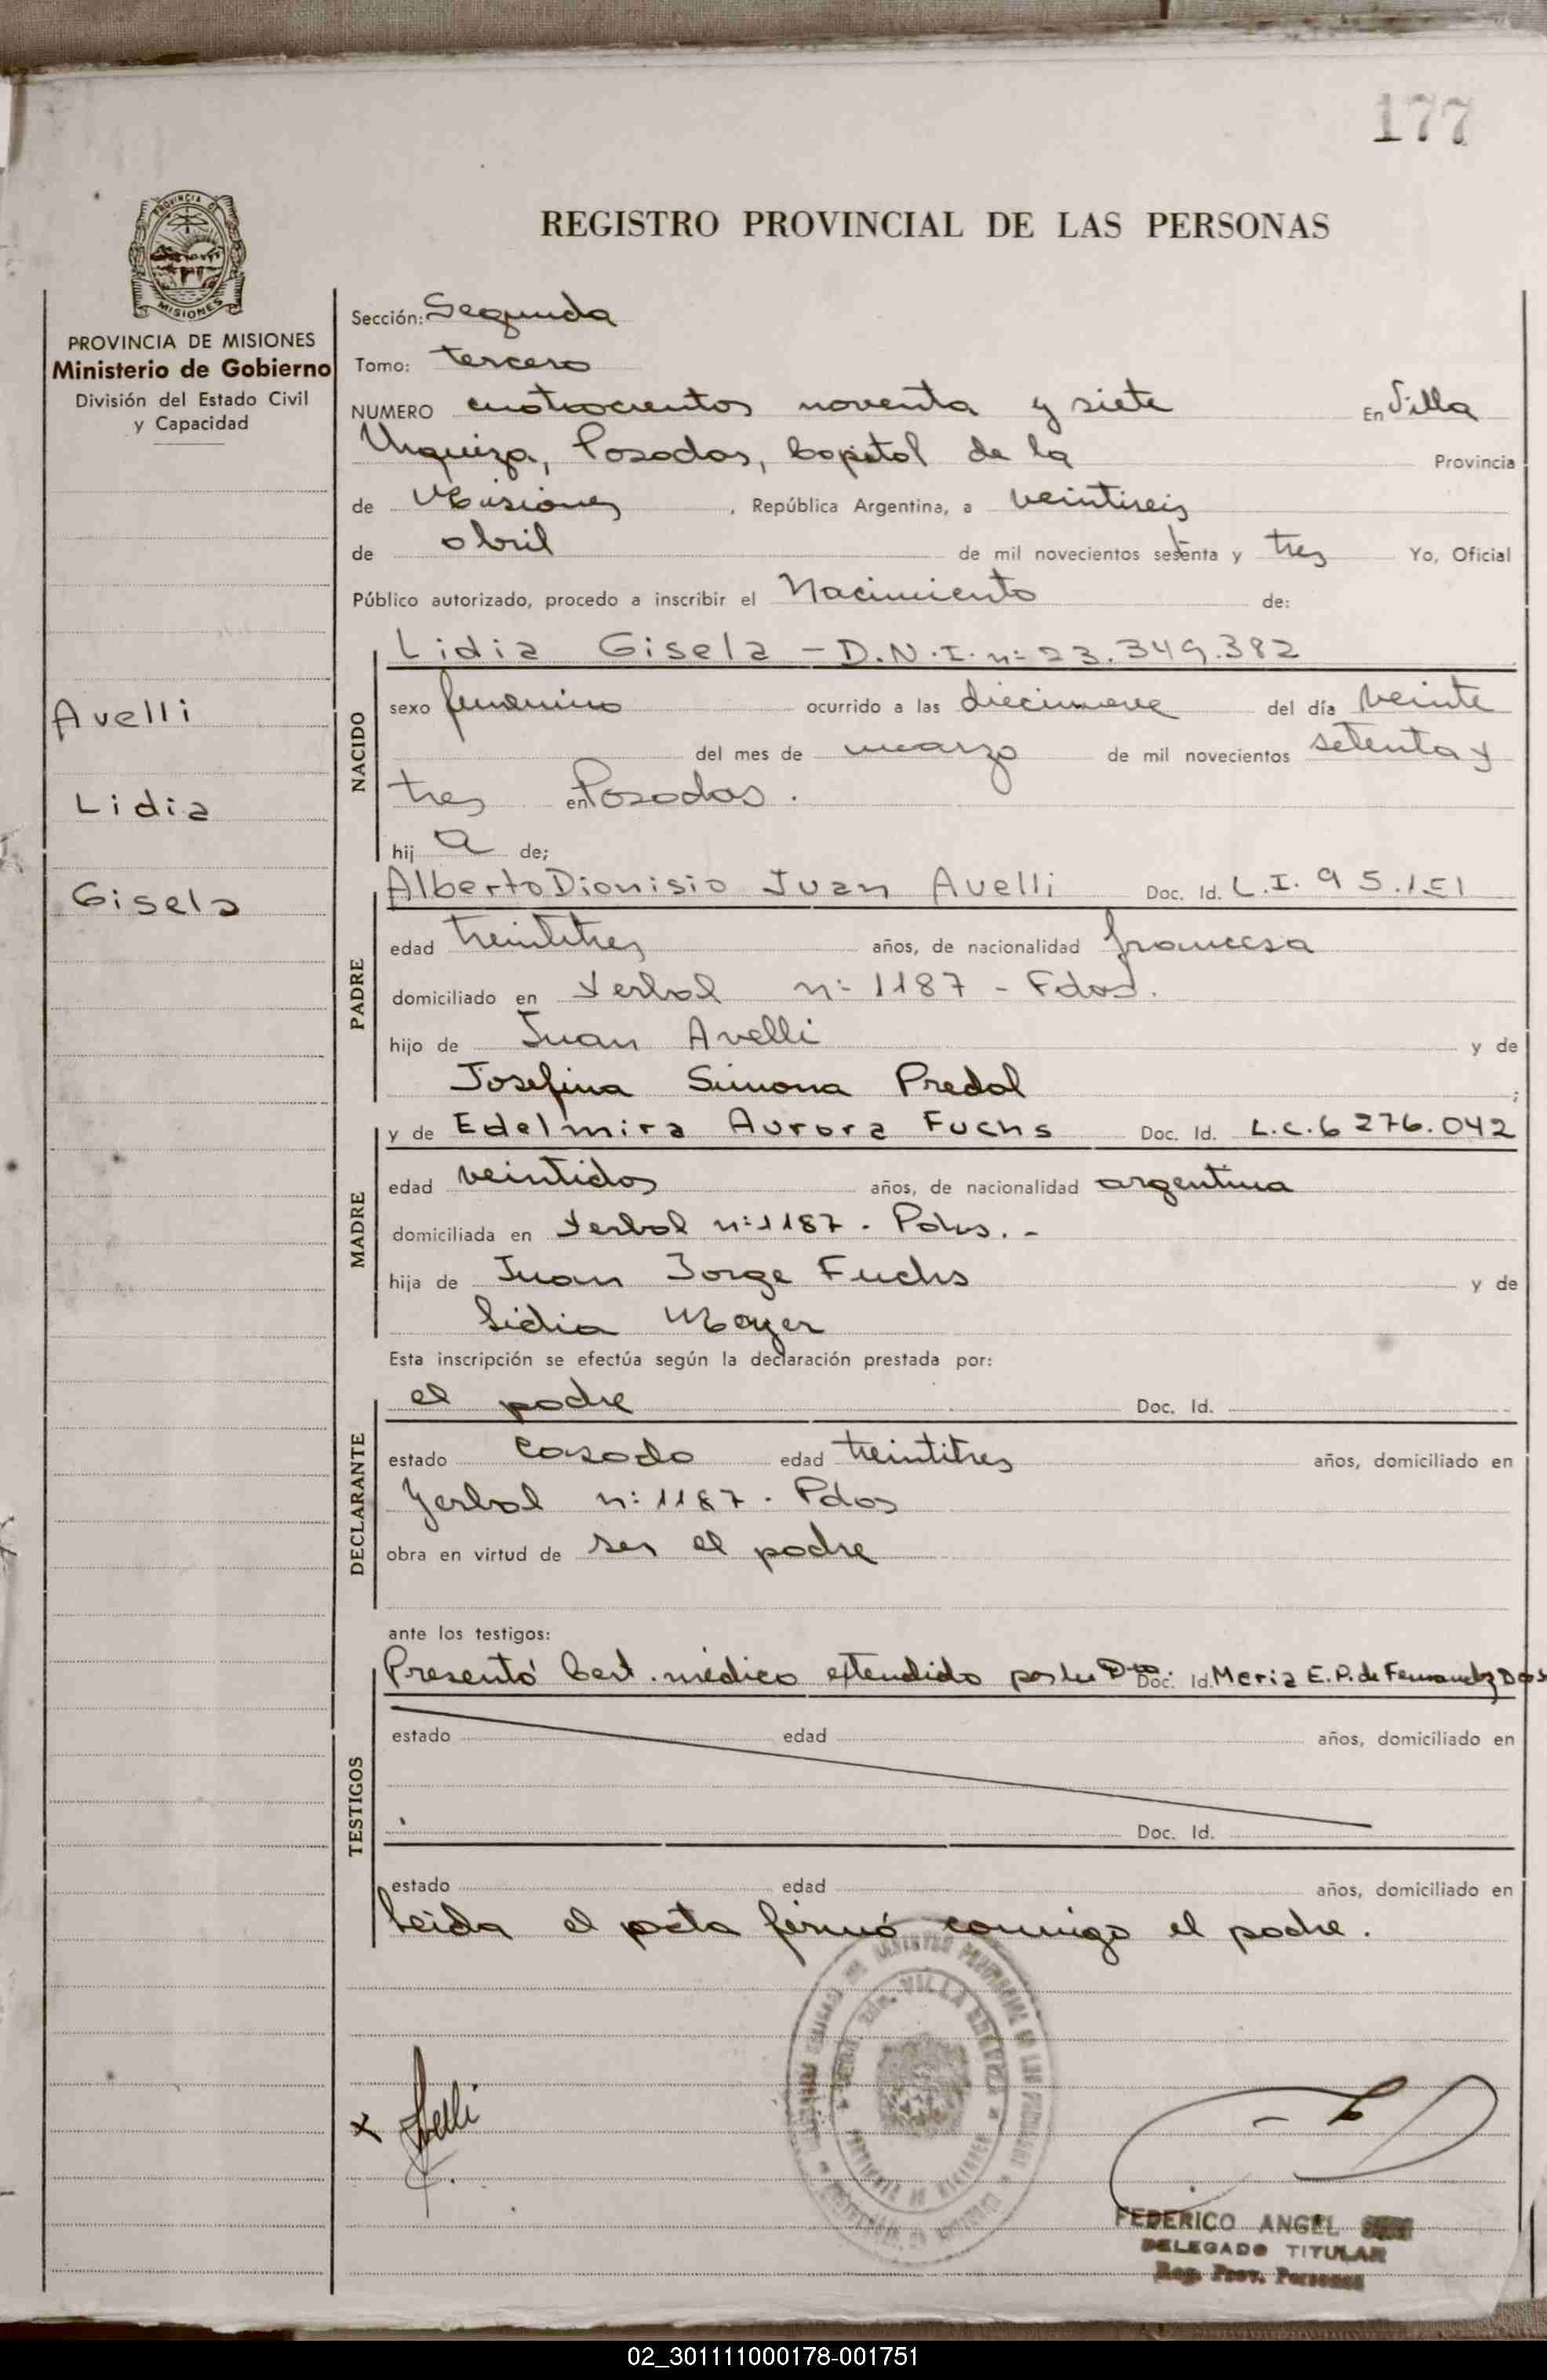 177
PROVINCIA DE MISIONES
REGISTRO PROVINCIAL DE LAS PERSONAS
PROVINCIA DE MISIONES
Ministerio de Gobierno
División del Estado Civil
y Capacidad
Avelli
Lidia
Gisela
Sección: Segunda
Tomo: tercero
NUMERO cuatrocientos noventa y siete En Villa
Urquiza, Posadas, Capital de la Provincia
de Misiones, República Argentina, a veintiseis
de abril de mil novecientos setenta y tres Yo, Oficial
Público autorizado, procedo a inscribir el Nacimiento de:
NACIDO
Lidia Gisela - D.N.I. nº 23.349.382
sexo femenino ocurrido a las diecinueve del día veinte
del mes de marzo de mil novecientos setenta y
tres en Posadas.
hij a de;
PADRE
Alberto Dionisio Juan Avelli Doc. Id. L.I. 95.151
edad treintitres años, de nacionalidad francesa
domiciliado en Yerbal nº 1187 - Pdas.
hijo de Juan Avelli y de
Josefina Simona Predal ;
MADRE
y de Edelmira Aurora Fuchs Doc. Id. L.C. 6 276.042
edad veintidos años, de nacionalidad argentina
domiciliada en Yerbal nº 1187 - Pdas. -
hija de Juan Jorge Fuchs y de
Lidia Mayer
Esta inscripción se efectúa según la declaración prestada por:
DECLARANTE
el padre Doc. Id.
estado casado edad treintitres años, domiciliado en
Yerbal nº 1187 - Pdas
obra en virtud de ser el padre
ante los testigos:
TESTIGOS
Presentó Cert. médico extendido por la Dra. Doc. Id. Maria E. P. de Fernandez
estado edad años, domiciliado en
Doc. Id.
estado edad años, domiciliado en
Leida el acta firmó conmigo el padre.
x Avelli
FEDERICO ANGEL
DELEGADO TITULAR
Reg. Prov. Personas
02_301111000178-001751